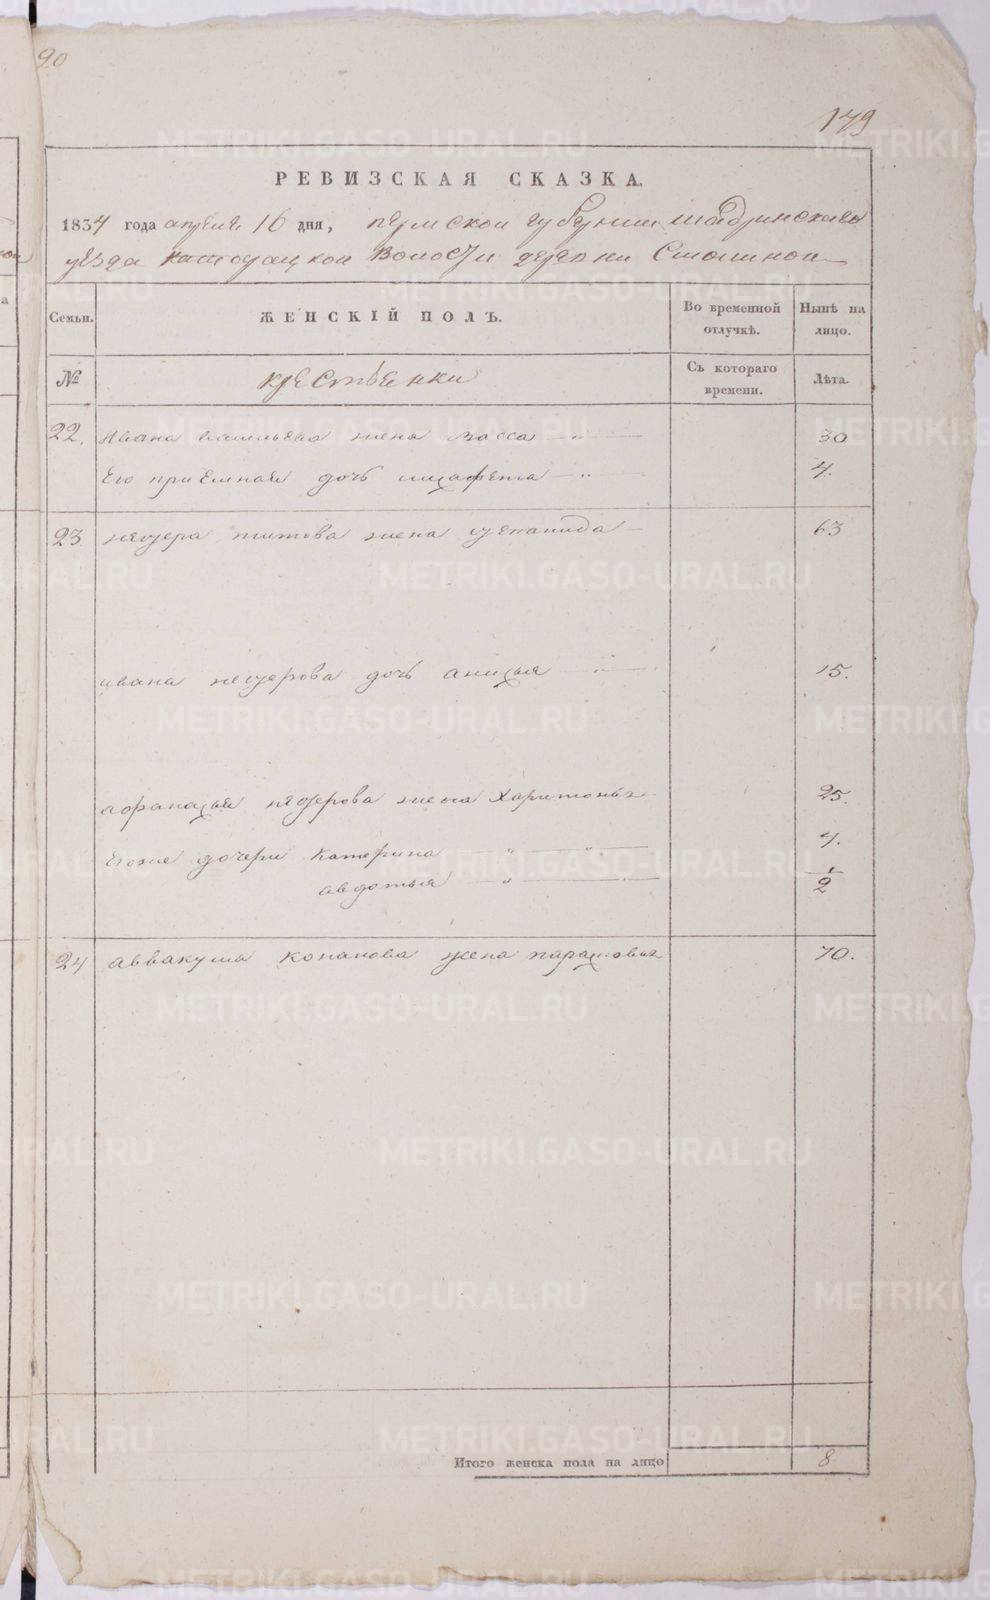 90
179
РЕВИЗСКАЯ СКАЗКА.
1834 года апреля 16 дня, пермской губернии шадринскаго
уезда волости деревни
Семьи.
ЖЕНСКІЙ ПОЛЪ.
Во временной отлучкѣ.
Нынѣ на лицо.
№
крестьянки
Съ котораго времени.
Лѣта.
22. Ивана васильева жена васса 30
Его приемная дочь 4.
23 нестера титова жена степанида 63
ивана нестерова дочь анисья 15.
афанасья нестерова жена Харитонья 25.
Егоже дочери катерина 4.
авдотья 1/2
24 аввакума жена парасковья 70.
Итого женска пола на лицо 8
METRIKI.GASO-URAL.RU